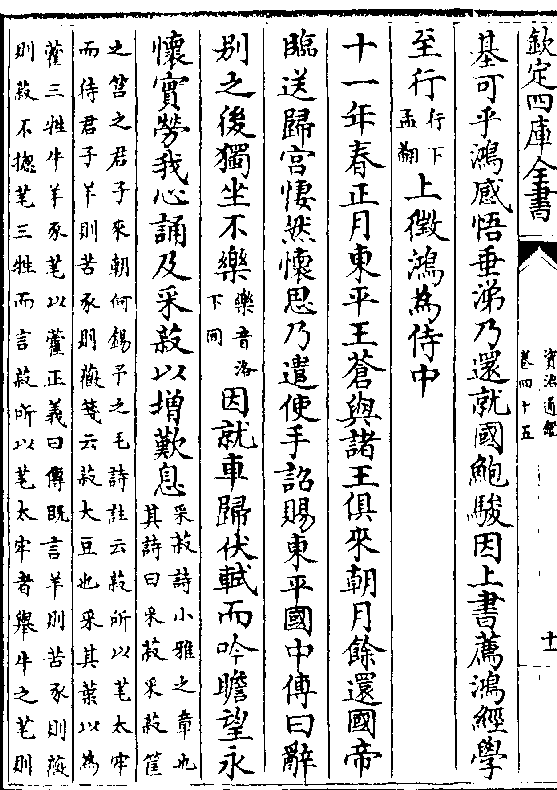 欽定四庫全書
資治通鑑
卷四十五
十一
基可乎鴻感悟垂涕乃還就國鮑駿因上書薦鴻經學
至行行下孟翻上徵鴻為侍中
十一年春正月東平王蒼與諸王俱來朝月餘還國帝
臨送歸宮悽然懷思乃遣使手詔賜東平國中傅曰辭
别之後獨坐不樂樂音洛下同因就車歸伏軾而吟瞻望永
懷實勞我心誦及采菽以增歎息采菽詩小雅之章也其詩曰采菽采菽筐
之筥之君子來朝何錫予之毛詩註云菽所以芼太牢
而待君子羊則苦豕則薇箋云菽大豆也采其葉以為
藿三牲牛羊豕芼以藿正義曰傳既言羊則苦豕則薇
則菽不揔芼三牲而言菽所以芼太牢者舉牛之芼則